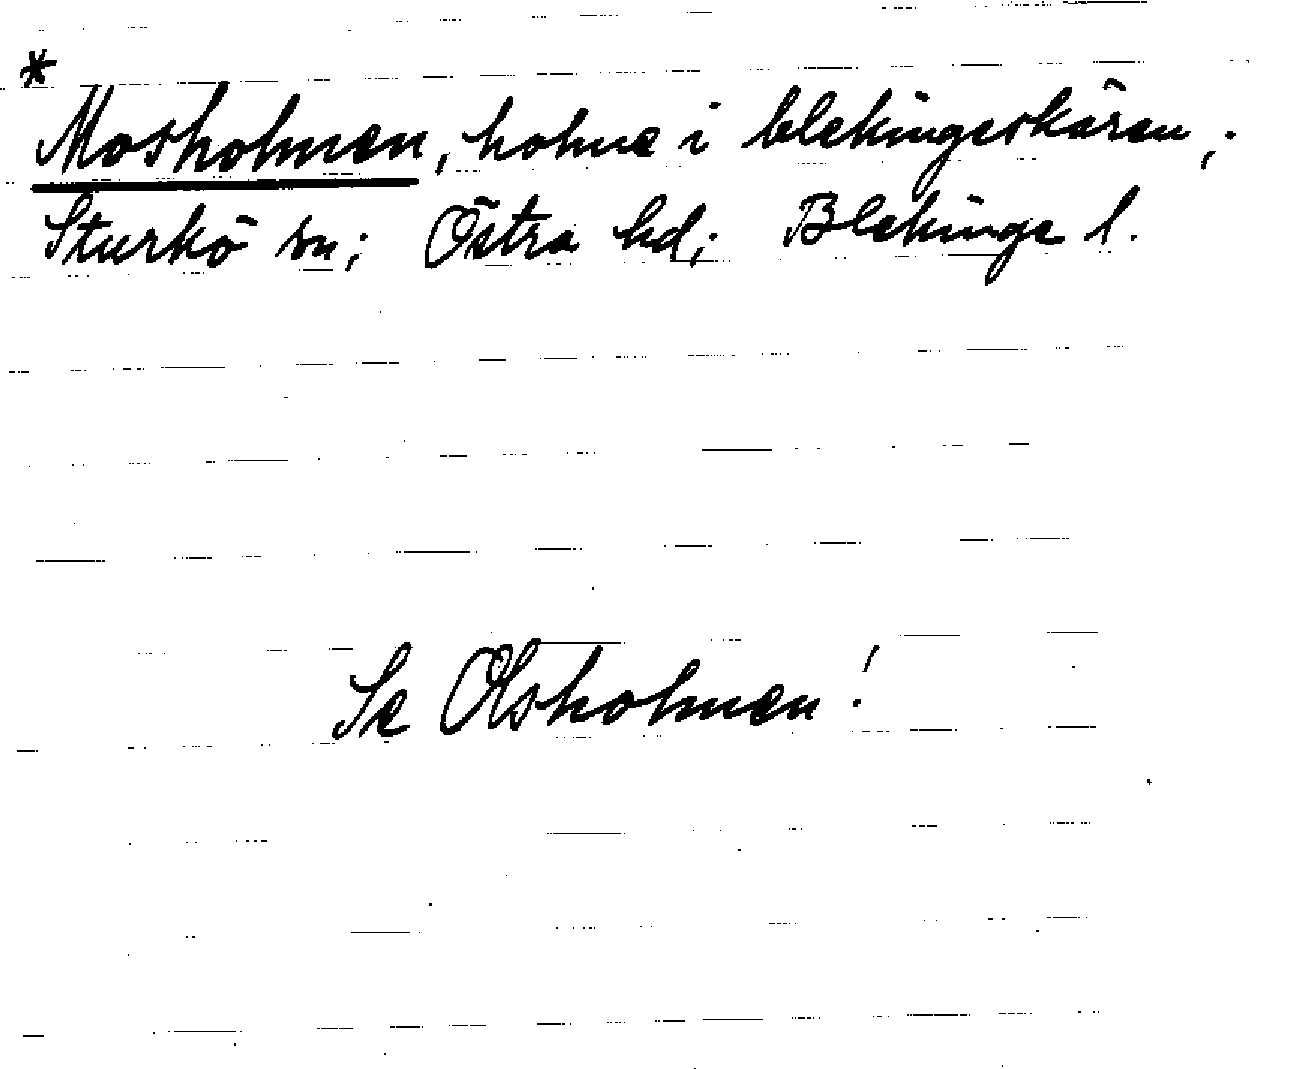 *
Mosholmen, holme i blekingeskären,.
Sturkö sn; Östra hd; Blekinge l.
Se Olsholmen!